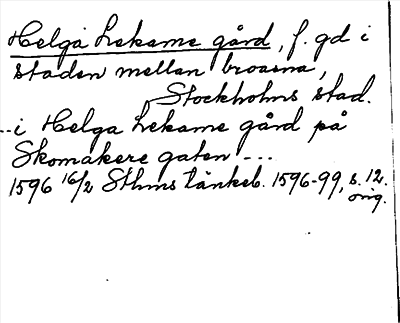 Helga Lekame gård, f. gd i
staden mellan broarna,
Stockholms stad.
--i Helga Lekame gård på
Skomakere gaten ---
1596 16/2 Sthms tänkeb. 1596-99, s. 12.
orig.